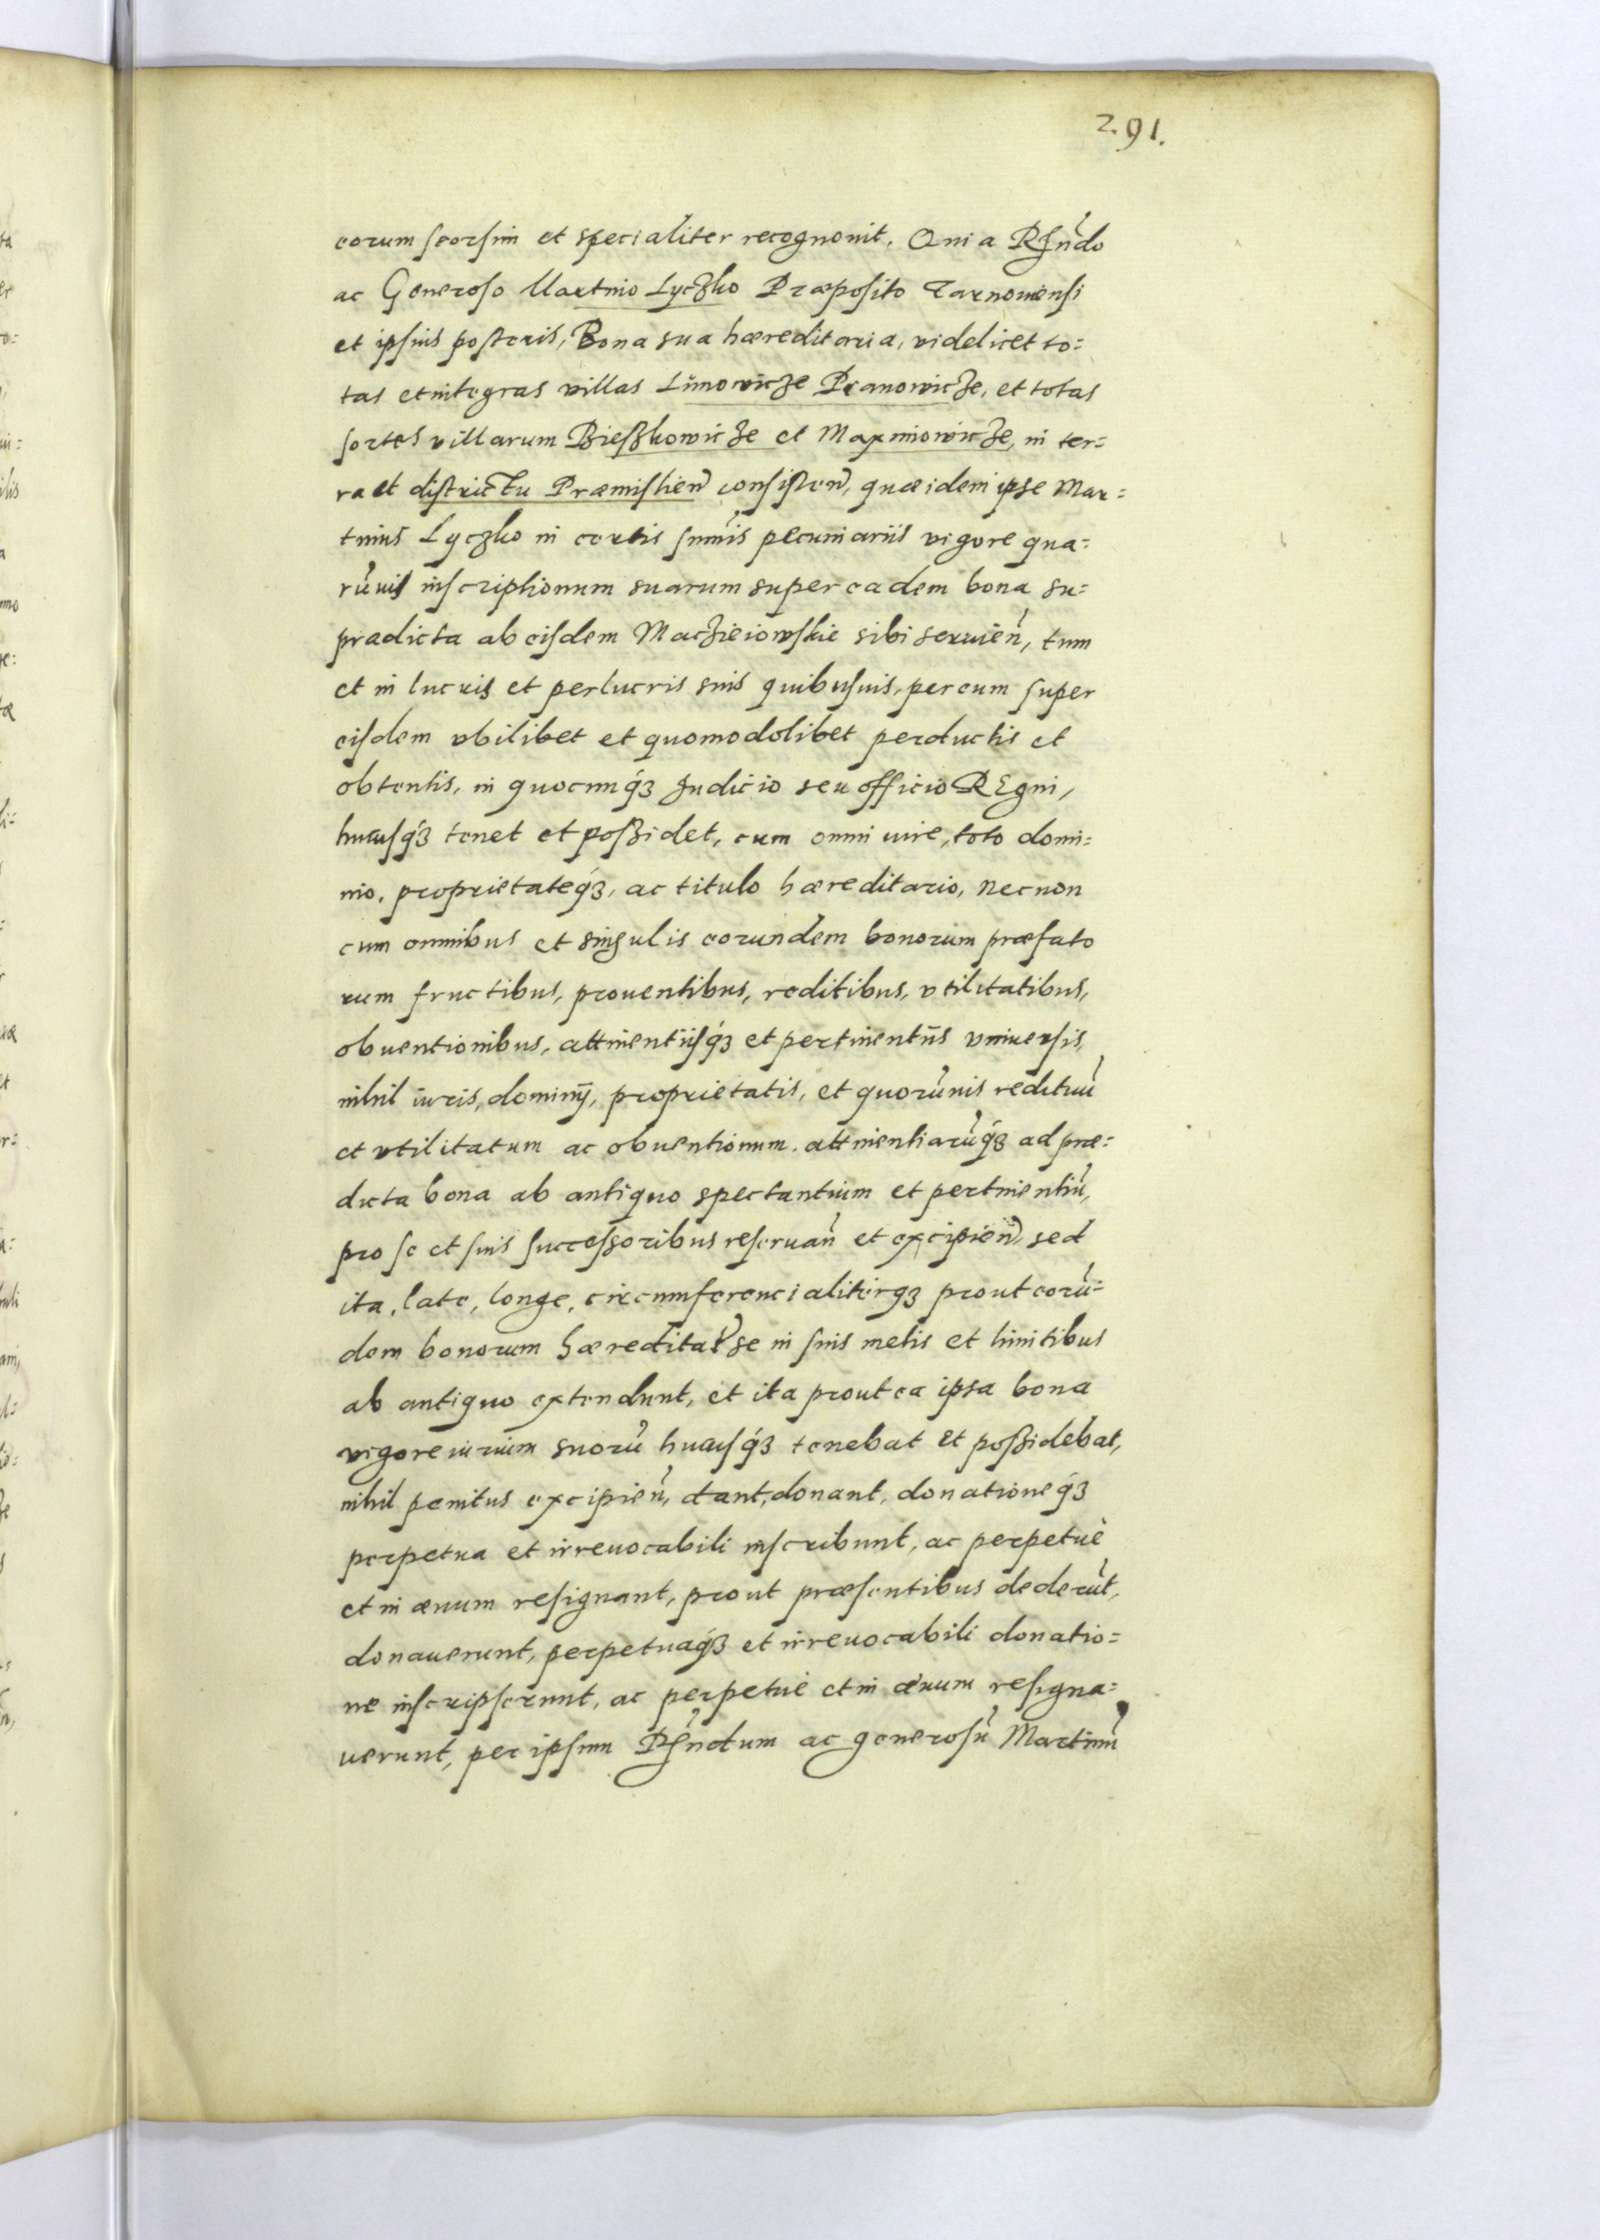 291.
eorum seorsim et specialiter recognovit. Quia Rn̄do
ac Generoso Martino Lyczko Præposito Tarnoviensi
et ipsius posteris, Bona sua hæreditaria, videlicet to=
tas et integras villas Limowicze Pranowicze, et totas
sortes villarum Bieszkowicze et Maxniowicze, in ter=
ra et districtu Præmislien̄ consisten̄, quæ idem ipse Mar=
tinus Lyczko in certis sum̄is pecuniariis vigore qua=
rūvis inscriptionum suarum super eadem bona su=
pradicta ab eisdem Maczieiowskie sibi servien̄, tum
et in lucris et perlucris suis quibusuis, per eum super
eisdem vbilibet et quomodolibet perductis et
obtentis, in quocunq́ꝫ Judicio seu officio REgni,
hucusq́ꝫ tenet et possidet, cum omni iure, toto domi=
nio, proprietateq́ꝫ, ac titulo hæreditario, nec non
cum omnibus et singulis eorundem bonorum præfato
rum fructibus, prouentibus, reditibus, vtilitatibus,
obuentionibus, attinentiisq́ꝫ et pertinentiis vniuersis,
nihil iuris, dominij, proprietatis, et quorūuis redituū
et vtilitatum ac obuentionum, attinentiarūq́ꝫ ad præ=
dicta bona ab antiquo spectantium et pertinentiū,
pro se et suis successoribus reseruan̄ et excipien̄, sed
ita, late, longe, circumferencialiterqꝫ prout eorū=
dem bonorum hæreditat̄ se in suis metis et limitibus
ab antiquo extendunt, et ita prout ea ipsa bona
vigore iurium suorū hucusq́ꝫ tenebat et possidebat,
nihil penitus excipien̄, dant, donant, donationeq́ꝫ
perpetua et irreuocabili inscribunt, ac perpetuè
et in æuum resignant, prout præsentibus dederūt,
donauerunt, perpetuaq́ꝫ et irreuocabili donatio=
ne inscripserunt, ac perpetuè et in æuum resigna=
uerunt, per ipsum Rn̄dum ac generosū Martinū